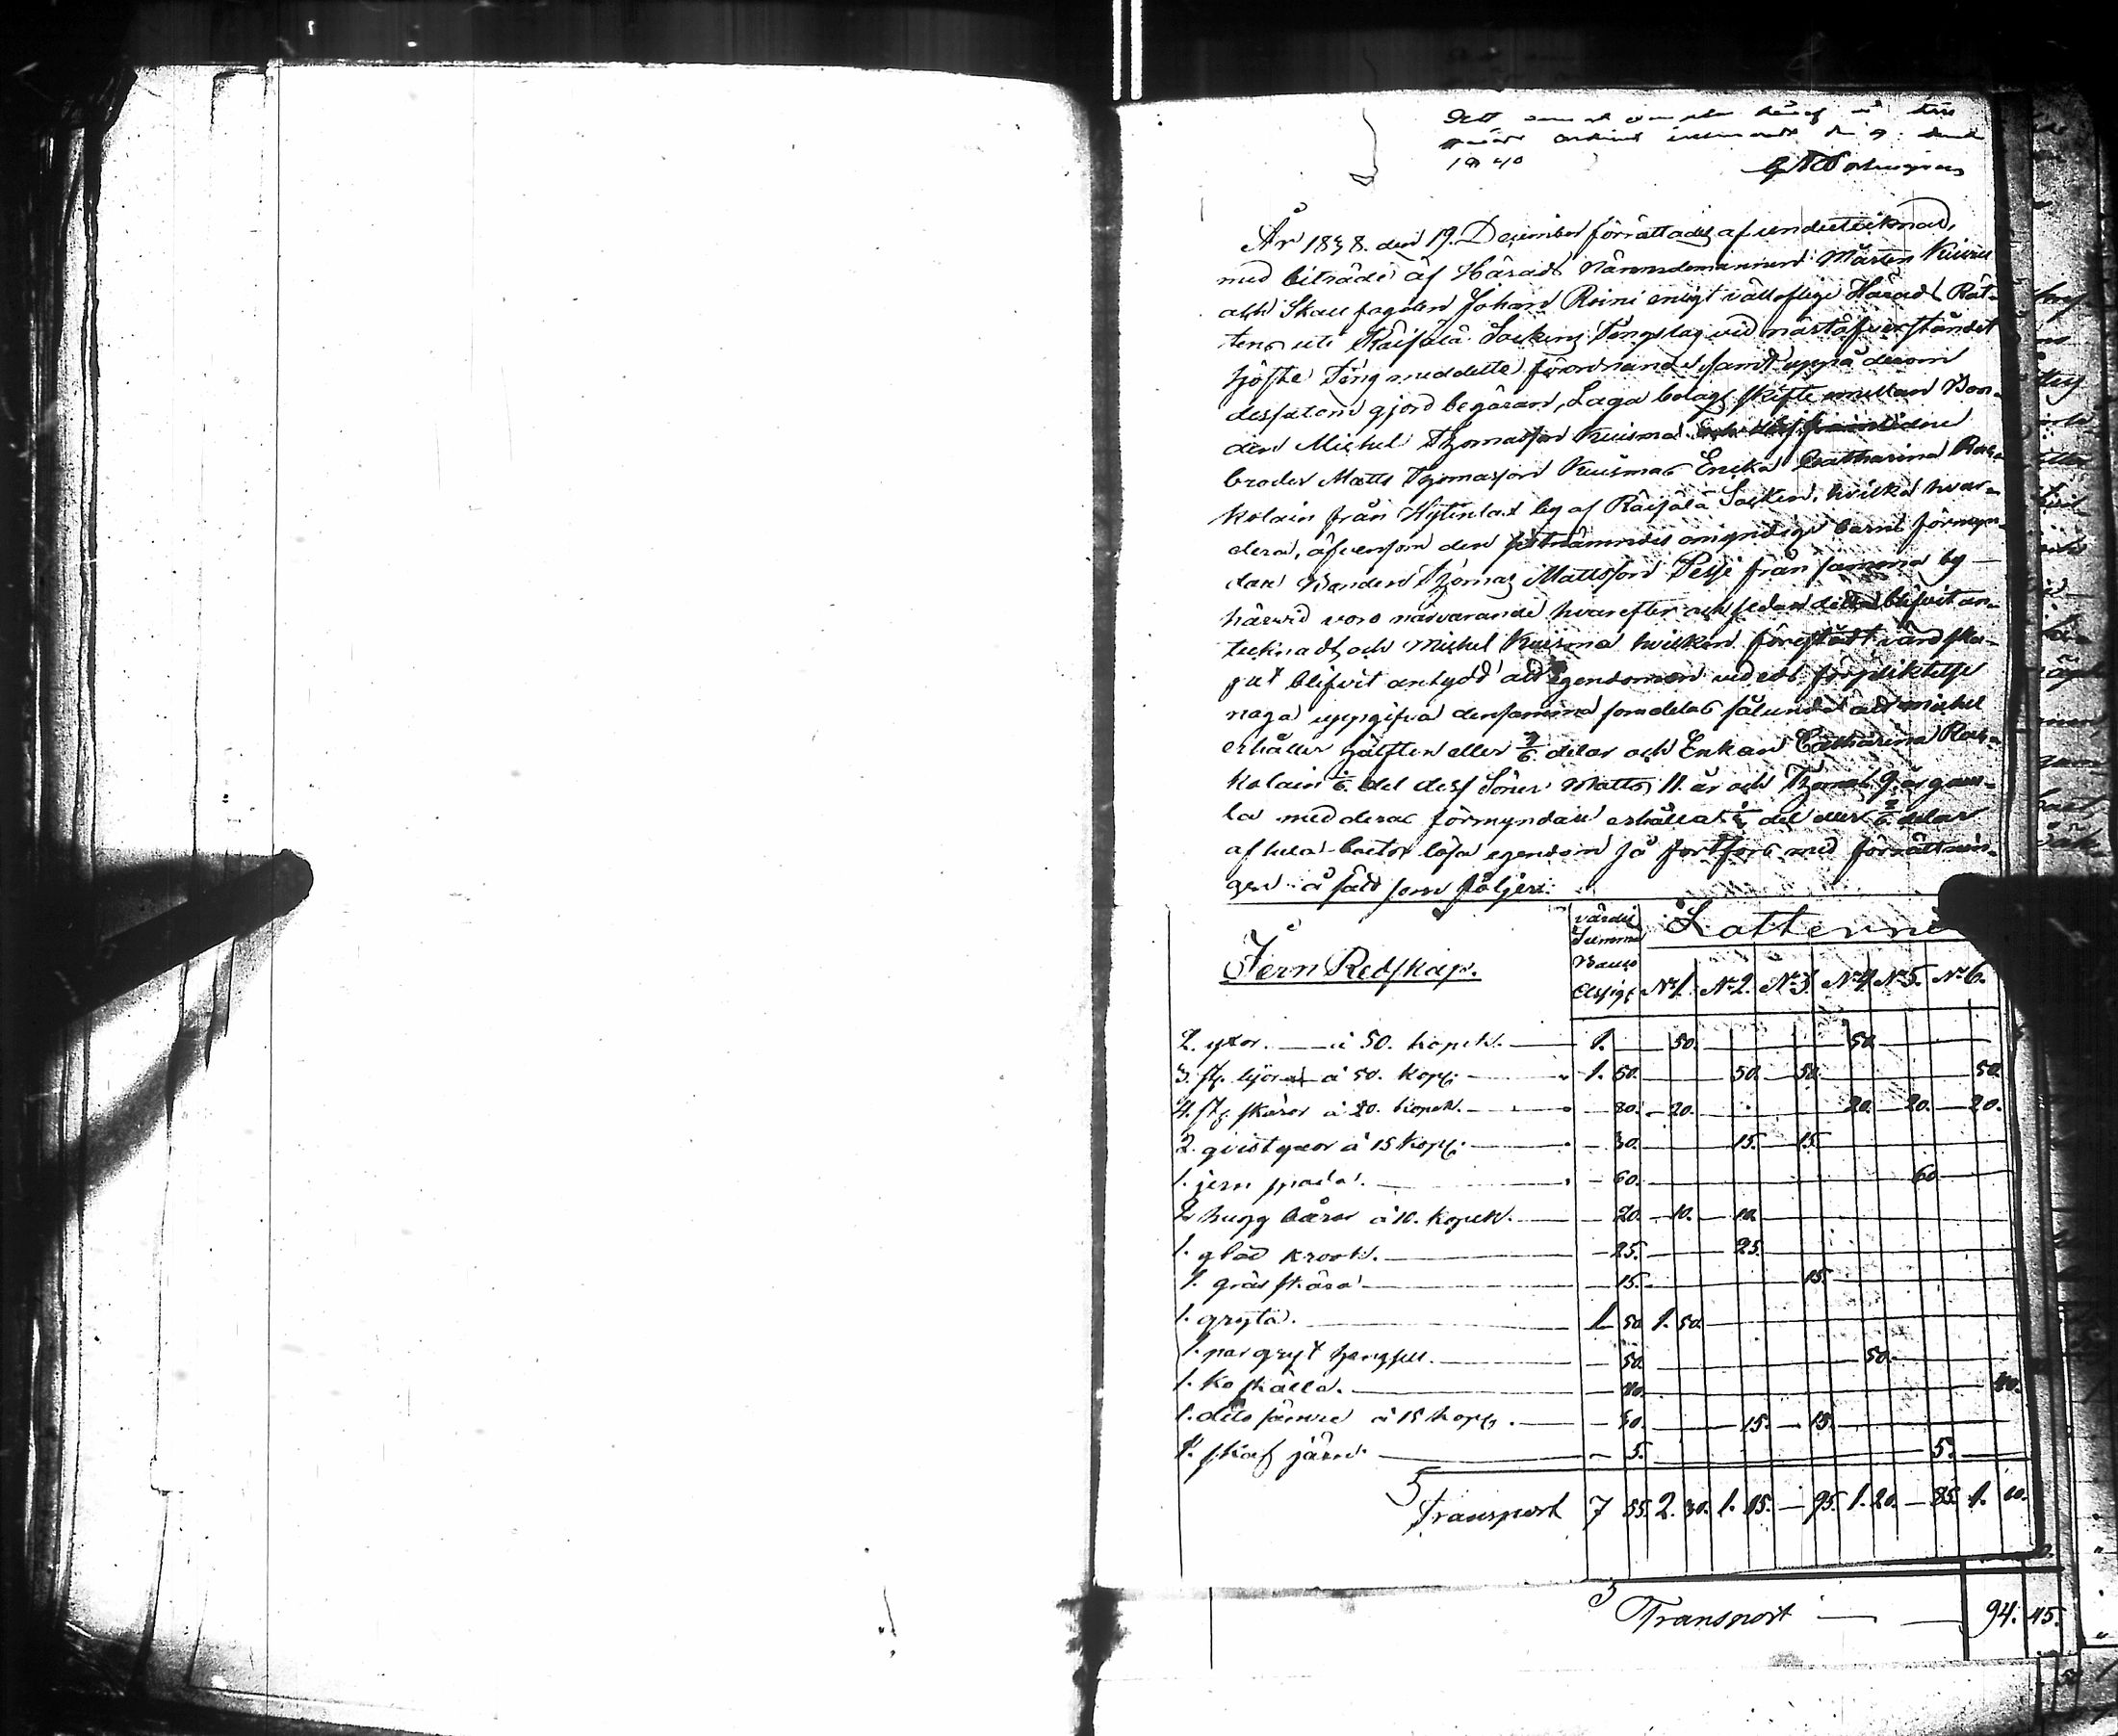 1840
År 1838. den 19. December förrättades af undertecknad,
med biträde af Härads Nämndemannen Mårten
och Skallfogden Johan Roini enligt vällofliga Härads Rät-
tens uti Räisälä Sockens Tingslag vid nästöfverståndet
höste Ting meddelte förordnande samt uppå derom
dessutom gjord begäran, Laga bolags skifte emellan Bon-
den Michel Thomasson Kuisma
broder Matts Thomasson Kuismas Encka Catharina Ras-
kolain från Hytinlax by af Räisälä Socken, hvilka hvar-
dera, äfvensom den sistnämndes omyndige barns förmyn-
dare Bonden Thomas Mattsson Pesse från samma by
härvid voro närvarande hvarefter och sedan detta blifvit an-
tecknadt och Michel Kuisma hvilken förestådt vårdska-
pet blifvit antydd att egendomen vid eds förpliktelse
noga uppgifva densamma som delas sålunda att Michel
erhåller hälften eller 3/6 delar och Enkan Catharina Ras-
kolain 1/6 del dess Söner Matts 11. år och Thomas 9. år gam-
la med deras förmyndare erhålla 1/3 del eller 2/6 delar
af hela boets lösa egendom så fortfors med förrättnin-
gen å sätt som följer:
Jern Redskap. värdi Summa Banco Assign: Lotterne
No 1. No 2. No 3. No 4. No 5. No 6.
2. yxor. — à 50. kopek. — 1. — 50. — 50.
3. st. lijor à 50. kop: — 1. 50. — 50. — 50. — 50.
4. st. skäror à 20. kopek. — 80. — 20. — 20. — 20. — 20.
2. qvistyxor à 15 kop: — 30. — 15. — 15.
1. jern spada. — 60. — 60
2 hugg à 10. kopek. — 20. — 10. — 10.
1. glöd krook. — 25. — 25.
1. grässkära — 15. — 15.
1. gryta. — 1 50 1. 50.
1. par gryt — 50. — 50.
1. ko skälla. — 40. — 40.
2. dito sämre à 15 kop. — 30. — 15. — 15.
1. skaf järn — 5. — 5.
Transport 7 55. 2. 30. 1. 15. — 95. 1. 20. — 85. 1. 10.
Transport — — 94. 45.